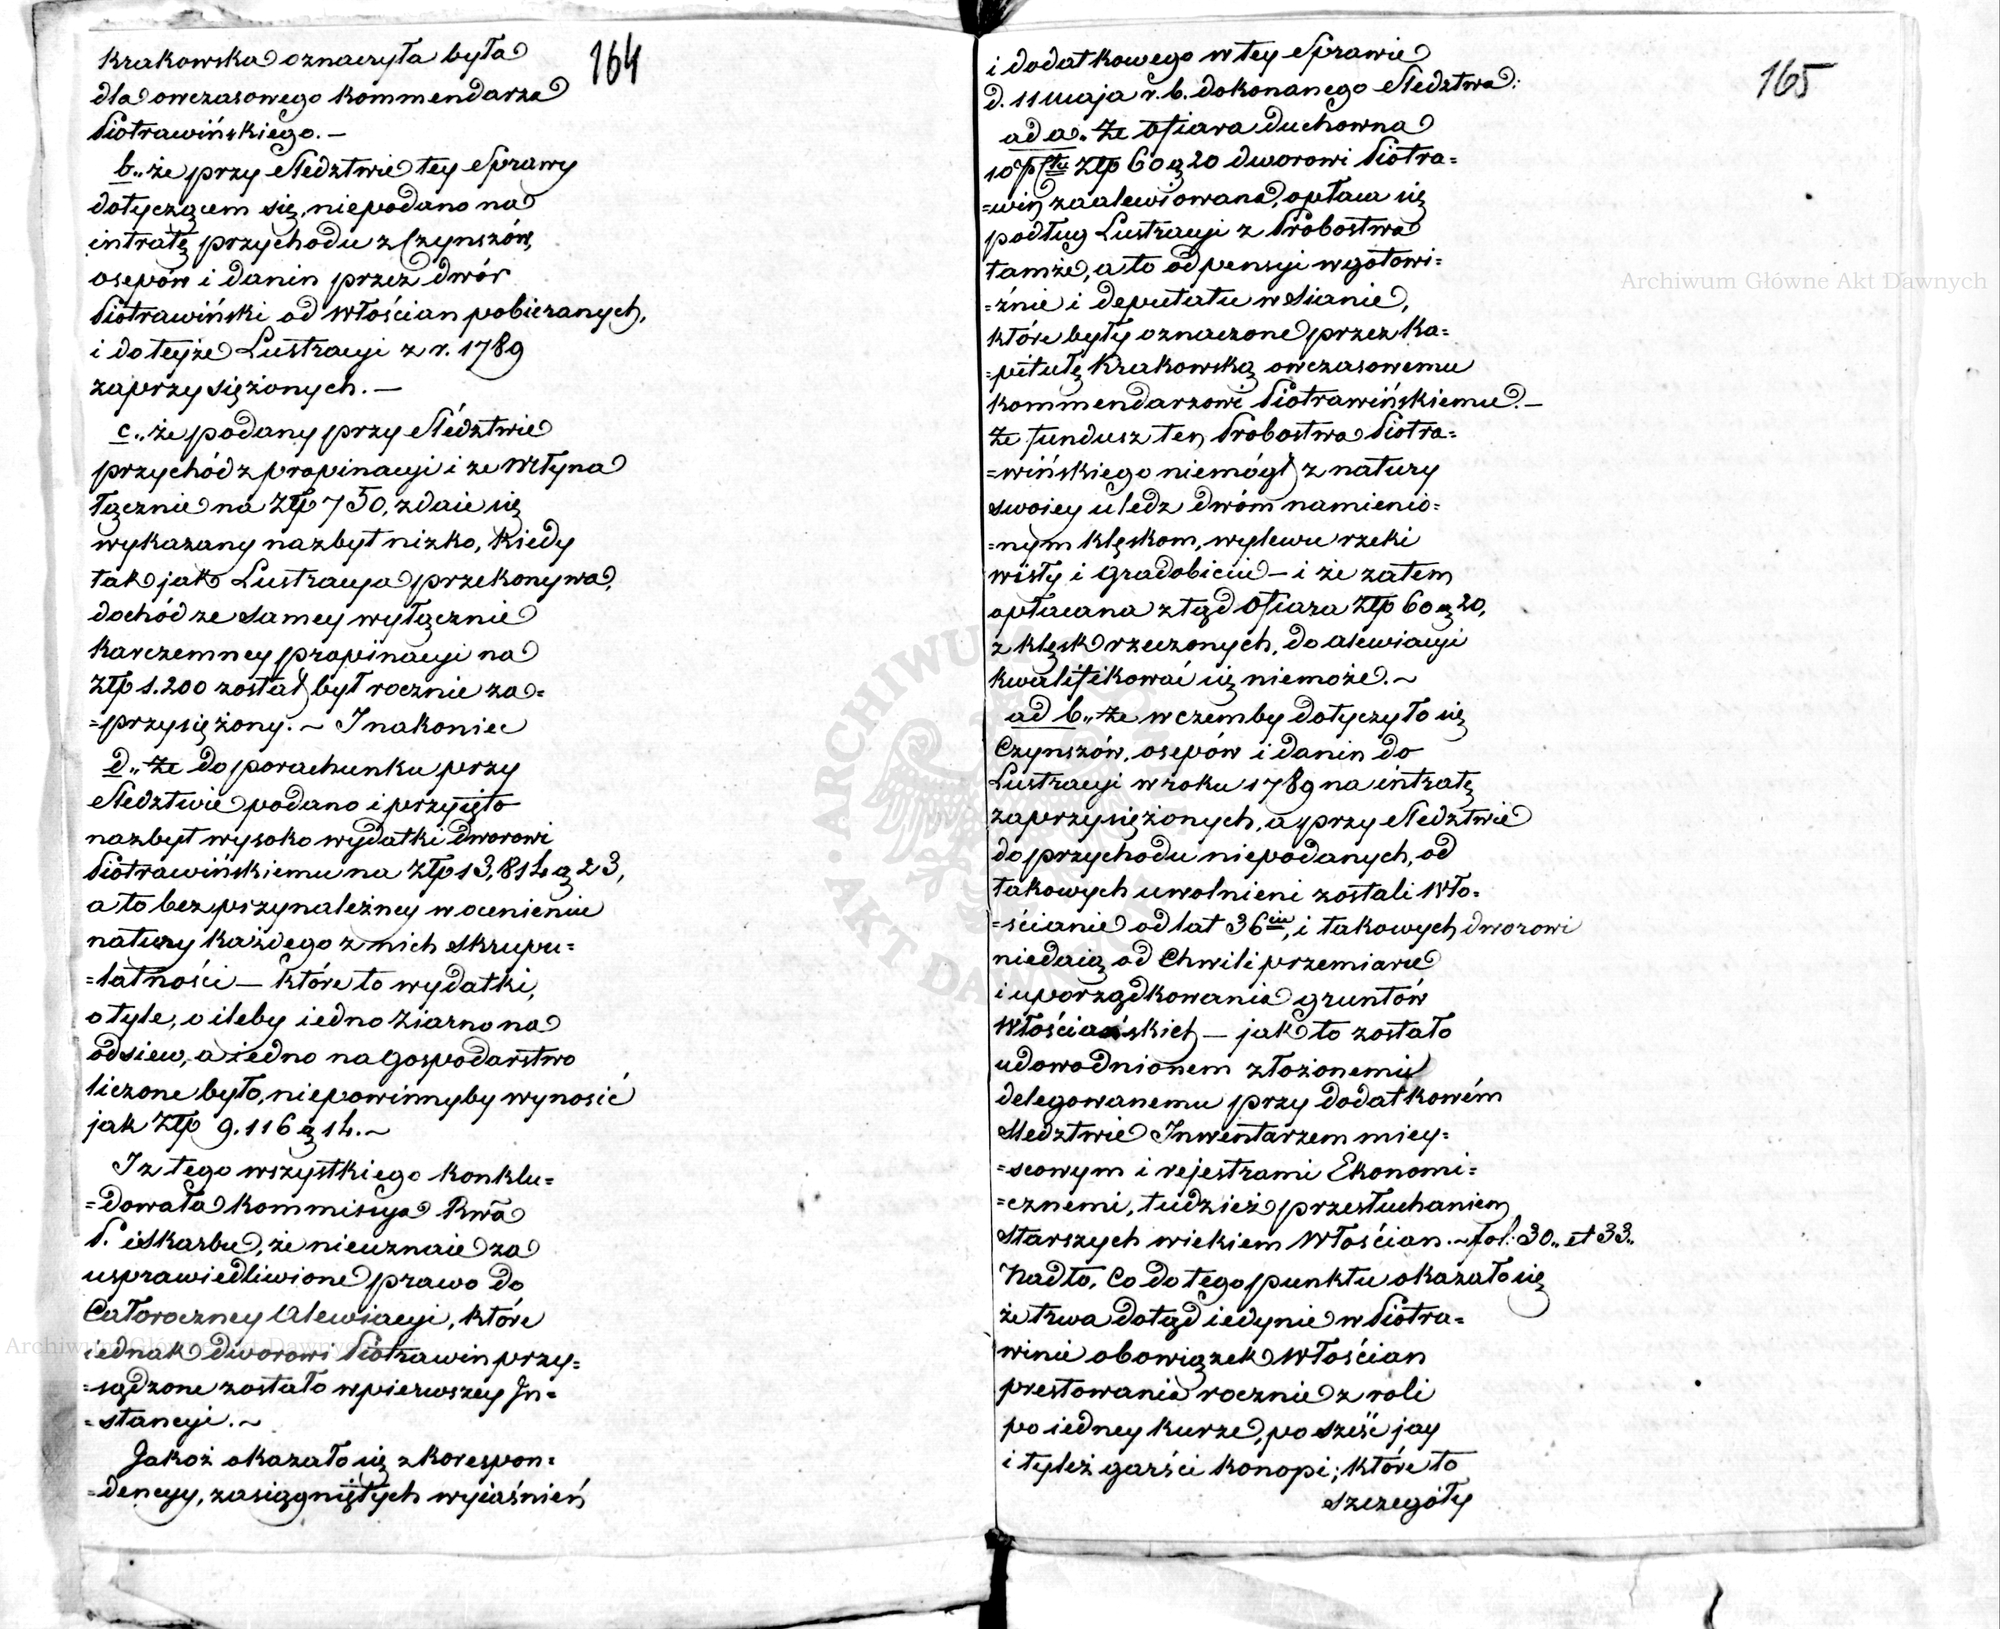 164
Krakowska oznaczyła była
dla owczasowego Kommendarza
Piotrawińskiego. —
b„ że przy Sledztwie tey Sprawy
dotyczącem się, niepodano na
intratę przychodu z Czynszów,
osepów i danin przez dwór
Piotrawiński od Włościan pobieranych,
i do teyże Lustracyi z r. 1789
zaprzysiężonych. —
c„ że podany przy Sledztwie
przychód z propinacyi i ze Młyna
łącznie na Złp 750, zdaie się
wykazany nazbyt nizko, Kiedy
tak jak Lustracya przekonywa,
dochód ze samey wyłącznie
Karczemney propinacyi na
Złp 1.200 został był rocznie za=
=przysiężony. ~ I nakoniec
d„ Że do porachunku przy
Sledztwie podano i przyięto
nazbyt wysoko wydatki dworowi
Piotrawińskiemu na Złp 13,814 g 23,
a to bez przynależney w ocenieniu
natury każdego z nich skrupu=
=latności — Które to wydatki,
o tyle, o ileby iedno Ziarno na
odsiew, a iedno na Gospodarstwo
liczone było, niepowinnyby wynosić
jak Złp 9.116 g 14. ~
I z tego wszystkiego konklu=
=dowała Kommisyja Rwa
P. i Skarbu, że nieuznaie za
usprawiedliwione prawo do
Całoroczney Alewiacyi, które
iednak dworowi Piotrawin przy=
=sądzone zostało w pierwszey In=
=stancyi. ~
Jakoż okazało się z korespon=
=dencyy, zasiągniętych wyiaśnień
165
i dodatkowego w tey Sprawie
d. 11 Maja r. b. dokonanego Sledztwa:
ad a„ Że Ofiara duchowna
10 Złp 60 g 20 dworowi Piotra=
=win zaalewiowana, opłaca się
podług Lustracyi z Probostwa
tamże, a to od pensyi w gotowi=
=źnie i deputatu w Sianie,
które były oznaczone przez Ka=
=pitułę Krakowską owczasowemu
Kommendarzowi Piotrawińskiemu. —
Że fundusz ten Probostwa Piotra=
=wińskiego niemógł z natury
swoiey uledz dwóm namienio=
=nym klęskom, wylewu rzeki
Wisły i Gradobiciu — i że zatem
opłacana ztąd Ofiara Złp 60 g 20,
z klęsk rzeczonych, do alewiacyi
kwalifikować się niemoże. ~
ad b„ Że w czemby dotyczyło się
Czynszów, osepów i danin do
Lustracyi w roku 1789 na intratę
zaprzysiężonych, a przy Sledztwie
do przychodu niepodanych, od
takowych uwolnieni zostali Wło=
=ścianie od lat 36iu, i takowych dworowi
niedaią od Chwili przemiaru
i uporządkowania gruntów
Włościańskich — jak to zostało
udowodnionem złożonemi
delegowanemu przy dodatkowém
Sledztwie Inwentarzem miey=
=scowym i rejestrami Ekonomi=
=cznemi, tudzież przesłuchaniem
starszych wiekiem Włościan. ~ fol: 30„ et 33„
Nadto, Co do tego punktu okazało się
że trwa dotąd iedynie w Piotra=
winie obowiązek Włościan
prestowania rocznie z roli
po iedney kurze, po sześć jay
i tyleż garści konopi; które to
szczegóły
Archiwum Główne Akt Dawnych
Archiwum Główne Akt Dawnych